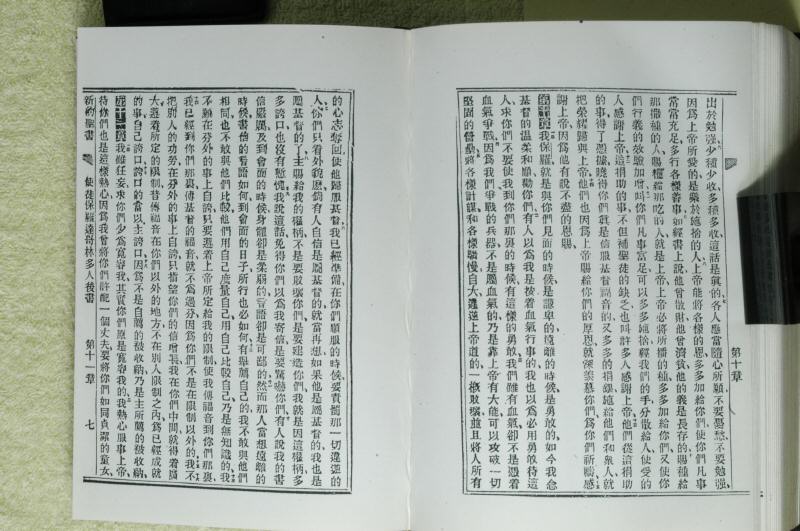 第十章
出於勉强少種少收多種多收這話是眞的各人應當隨心所願不要愁不要勉强
因爲上帝所愛的是樂於施捨的人上帝能將各樣的恩多多加給你們使你們凡事
常常充足多行各樣善事如經書上說他曾散財他曾濟貧他的義是長存的賜種給
那撒種的人賜糧給那吃的人就是上帝上帝必將所播的種多多加給你們又使你
們行義的效驗加增叫你們凡事富足可以多多施捨經我們的手分散給人使受的
人感謝上帝這捐助的事不但補聖徒的缺乏也叫許多人感謝上帝他們從這捐助
的事得了憑據曉得你們就是信服基督福音的又多多的捐錢給他們和衆人就
把榮耀歸上帝他們也因爲上帝賜給你們的厚恩就深羨慕你們爲你們祈禱感
謝上帝因爲他有說不盡的恩賜
第十章我保羅就是與你們見面的時候是謙卑的遠離的時候是勇敢的如今我念
基督的溫柔和順勸你們有人以爲我是按着血氣行事的我也以爲必用勇敢待這
人求你們不要使我到你們那裏的時候有這樣的勇敢我們雖有血氣卻不是憑着
血氣爭戰因爲我們爭戰的兵器不是屬血氣的乃是靠上帝有大能可以攻破一切
堅固的營壘將各樣計謀和各樣驕慢自大違逆上帝道的一概攻破並且將人所有
的心志奪回使他歸服基督我已經準備在你們順服的時候要責罰那一切違逆的
人你們只看外貌麽倘有人自信是屬基督的就當再想如果他是屬基督的我也是
屬基督的主賜給我的權柄不是要敗壞你們是要建造你們我就是因這權柄多
多誇口也沒有慚愧我說這話免得你們以爲我寄信是要驚嚇你們有人說我的書
信嚴厲及到會面的時候身體卻是柔弱的言語卻是可鄙的然而那人當想遠離的
時候書信的言語如何到會面的日子所行也必如何有舉薦自己的我不敢與他們
相同也不敢與他們比較他們用自己度量自己用自己比較自己乃是無知識的我
不願在分外的事上自誇只要遵着上帝所定給我的限制使我傳福音到你們那裏
我已經到你們那裏傳基督的福音就不爲過分因爲你們不是在限制以外的我不
把別人的功勞在分外的事上自誇只指望你們的信增長我在你們中間就得着廣
大遵着所定的限制普傳福音在你們以外的地方不在別人限制之內爲已經成就
的事自己誇口誇口的當以主誇口因爲不是自薦的蒙收納乃是主所薦的蒙收納
第十一章我雖狂妄求你們少爲寬容我其實你們原是寬容我的我熱心服事上帝
待你們也是這樣熱心因爲我曾將你們許配一個丈夫要將你們如同貞潔的童女
新約聖書
使徒保羅達哥林多人後書
第十一章
七